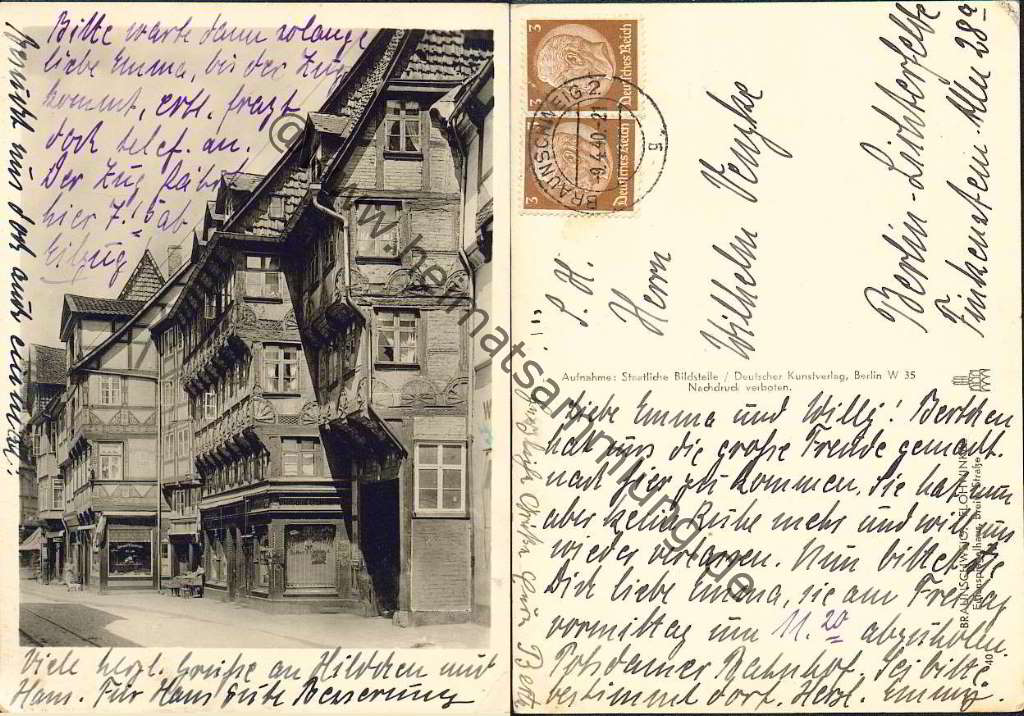 Bitte warte dann solange
liebe Emma, bis der Zug
kommt, evtl. fragt
doch telef. an.
Der Zug fährt
hier 7.15 ab
Eilzug
Besucht uns doch auch einmal!
Viele herzl. Grüße an Hildchen und
Hans. Für Hans Gute Besserung
3 Deutsches Reich 3
3 Deutsches Reich
BRAUNSCHWEIG 2
-9.4.40.-2
g
S. H.
Herrn
Wilhelm Venzke
Berlin-Lichterfelde
Finkensteiner Allee 28a
Aufnahme: Staatliche Bildstelle / Deutscher Kunstverlag, Berlin W 35
Nachdruck verboten.
Liebe Emma und Willy! Bertchen
hat uns die große Freude gemacht
nach hier zu kommen. Sie hat nun
aber keine Ruhe mehr und will uns
wieder verlassen. Nun bittet sie
Dich liebe Emma, sie am Freitag
vormittag um 11.20 abzuholen
Potsdamer Bahnhof. Sei bitte
bestimmt dort. Herzl. Emmy.
Herzlich Grüße
BRAUNSCHWEIG
40
@ www.heimatsammlung.de